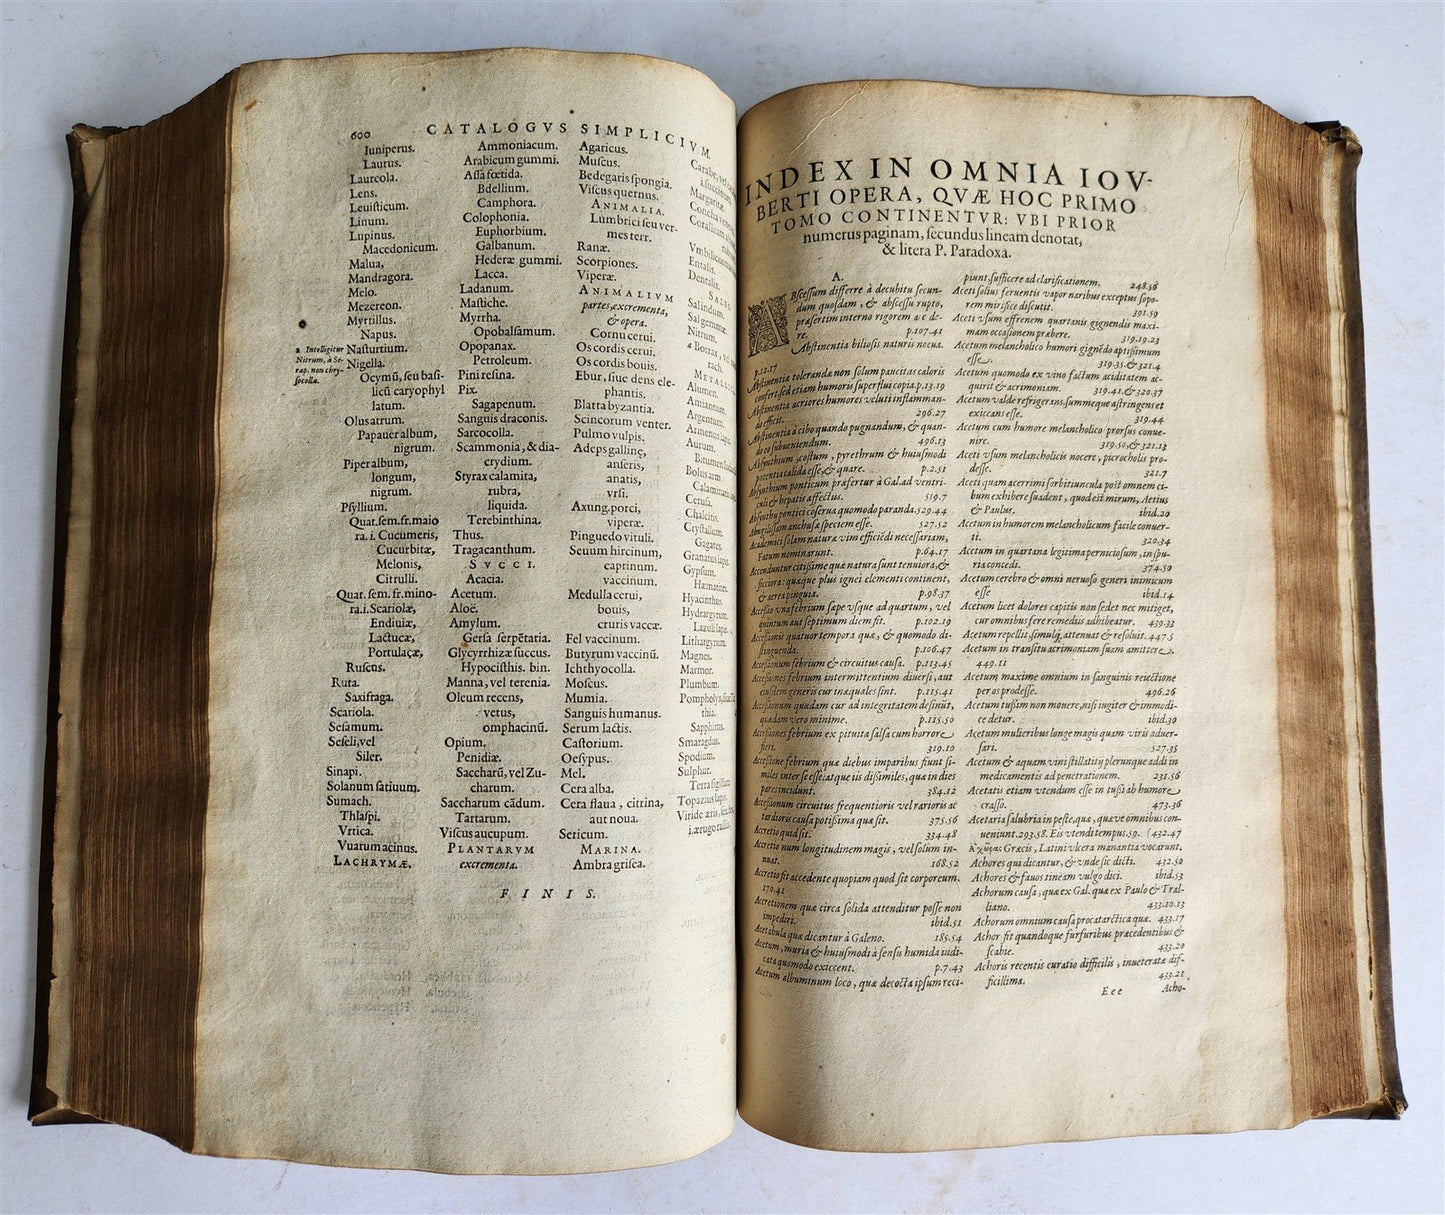 600
CATALOGVS SIMPLICIVM.
Iuniperus.
Laurus.
Laureola.
Lens.
Leuisticum.
Linum.
Lupinus.
Macedonicum.
Malua,
Mandragora.
Melo.
Mezereon.
Myrtillus.
Napus.
Nasturtium.
Nigella.
Ocymũ, seu basi-
licũ caryophyl
latum.
Olusatrum.
Papauer album,
nigrum.
Piper album,
longum,
nigrum.
Psyllium.
Quat.sem.fr.maio
ra.i. Cucumeris,
Cucurbitæ,
Melonis,
Citrulli.
Quat. sem. fr. mino-
ra.i. Scariolæ,
Endiuiæ,
Lactucæ,
Portulaçæ,
Ruscus.
Ruta.
Saxifraga.
Scariola.
Sesamum.
Seseli, vel
Siler.
Sinapi.
Solanum satiuum.
Sumach.
Thlaspi.
Vrtica.
Vuarum acinus.
LACHRYMÆ.
a Intelligitur
Nitrum, à Se-
rap. non chry-
socolla.
Ammoniacum.
Arabicum gummi.
Assa fœtida.
Bdellium.
Camphora.
Colophonia.
Euphorbium.
Galbanum.
Hederæ gummi.
Lacca.
Ladanum.
Mastiche.
Myrrha.
Opobalsamum.
Opopanax.
Petroleum.
Pini resina.
Pix.
Sagapenum.
Sanguis draconis.
Sarcocolla.
Scammonia, & dia-
crydium.
Styrax calamita,
rubra,
liquida.
Terebinthina.
Thus.
Tragacanthum.
SVCCI.
Acacia.
Acetum.
Aloë.
Amylum.
Gersa serpẽtaria.
Glycyrrhizæ succus.
Hypocisthus. bin.
Manna, vel terenia.
Oleum recens,
vetus,
omphacinũ.
Opium.
Penidiæ.
Saccharũ, vel Zu-
charum.
Saccharum cãdum.
Tartarum.
Viscus aucupum.
PLANTARVM
excrementa.
Agaricus.
Muscus.
Bedegaris spongia.
Viscus quernus.
ANIMALIA.
Lumbrici seu ver-
mes terr.
Ranæ.
Scorpiones.
Viperæ.
ANIMALIVM
partes, excrementa,
& opera.
Cornu cerui.
Os cordis cerui.
Os cordis bouis.
Ebur, siue dens ele-
phantis.
Blatta byzantia.
Scincorum venter.
Pulmo vulpis.
Adeps gallinę,
anseris,
anatis,
vrsi.
Axung. porci,
viperæ.
Pinguedo vituli.
Seuum hircinum,
caprinum.
vaccinum.
Medulla cerui,
bouis,
cruris vaccæ.
Fel vaccinum.
Butyrum vaccinũ.
Ichthyocolla.
Moscus.
Mumia.
Sanguis humanus.
Serum lactis.
Castorium.
Oesypus.
Mel.
Cera alba.
Cera flaua, citrina,
aut noua.
Sericum.
MARINA.
Ambra grisea.
Carabe, vel
Margaritæ
Concha
Corallium
Vmbilicus
Entalis.
Dentalis.
SALES
Sal indum.
Sal gemmæ
Nitrum.
a Borrax, vel
METALLI
Alumen.
Amiantum.
Argentum.
Armenus lapis.
Aurum.
Bitumen
Bolus arm.
Calaminaris
Cerusa.
Chalcitis.
Crystallum.
Gagates.
Granatus lapis.
Gypsum.
Hæmatites.
Hyacinthus.
Hydrargyrum.
Lazuli lapis.
Lithargyrum.
Magnes.
Marmor.
Plumbum.
Pompholyx,
thia.
Sapphirus.
Smaragdus.
Spodium.
Sulphur.
Terra sigillata
Topazius lapis.
Viride æris,
i. ærugo
FINIS.
INDEX IN OMNIA IOV-
BERTI OPERA, QVÆ HOC PRIMO
TOMO CONTINENTVR: VBI PRIOR
numerus paginam, secundus lineam denotat,
& litera P. Paradoxa.
A.
ABscessum differre à decubitu secun-
dum quosdam, & abscessu rupto,
præsertim interno rigorem accede-
re. p.107.41
Abstinentia biliosis naturis nocua.
p.12.17
Abstinentia tolerandæ non solum paucitas caloris
confert, sed etiam humoris superflui copia. p.13.19
Abstinentia acriores humores veluti inflamman-
do efficit. 296.27
Abstinentia à cibo quando pugnandum, & quan-
do ea subuentendum. 496.13
Absynthium, costum, pyrethrum & huiusmodi
potentia calida esse, & quare. p.2.51
Absynthium ponticum præfertur à Gal. ad ventri-
culi & hepatis affectus. 519.7
Absynthij pontici cõserua quomodo paranda. 529.44
Abugilssam anchusæ speciem esse. 527.52
Academici solam naturæ vim efficiẽdi necessariam,
Fatum nominarunt. p.64.17
Accenduntur citissime quæ natura sunt tenuiora, &
sicciora: quæque plus ignei elementi continent,
& aerea pinguia. p.98.37
Accessio vna febrium sæpe vsque ad quartum, vel
quintum aut septimum diem fit. p.102.19
Accessionis quatuor tempora quæ, & quomodo di-
stinguenda. p.106.47
Accessionum febrium & circuitus causa. p.113.45
Accessiones febrium intermittentium diuersi, aut
eiusdem generis cur inæquales sint. p.115.41
Accessionum quædam cur ad integritatem desinũt,
quædam vero minime. p.115.50
Accessiones febrium ex pituita salsa cum horrore
fieri. 319.10
Accessione febrium quæ diebus imparibus fiunt si-
miles inter se esse: atque iis dissimiles, quæ in dies
pares incidunt. 384.12
Accessionum circuitus frequentioris vel rarioris ac
tardioris causa potissima quæ sit. 375.56
Accretio quid sit. 334.48
Accretio num longitudinem magis, vel solum in-
nuat. 168.52
Accretio fit accedente quopiam quod sit corporeum.
170.41
Accretionem quæ circa solida attenditur posse non
impediri. ibid.51
Acetabula quæ dicantur à Galeno. 185.54
Acetum, muria & huiusmodi à sensu humida iudi-
cata quomodo exiccent. p.7.43
Acetum albuminum loco, quæ decocta ipsum reci-
piunt, sufficere ad clarificationem. 248.56
Aceti solius feruentis vapor naribus exceptus sopo-
rem mirifice discutit. 391.59
Aceti vsum effrenem quartanis gignendis maxi-
mam occasionem præbere. 319.19.23
Acetum melancholico humori gignẽdo aptissimum
esse. 319.35.& 321.4
Acetum quomodo ex vino factum aciditatem ac-
quirit & acrimoniam. 319.41.& 320.37
Acetum valde refrigerans, summeque astringens et
exiccans esse. 319.44
Acetum cum humore melancholico prorsus conue-
nire. 319.50.& 321.13
Aceti vsum melancholicis nocere, picrocholis pro-
desse. 321.7
Aceti quam acerrimi sorbitiuncula post omnem ci-
bum exhibere suadent, quod est mirum, Aetius
& Paulus. ibid.20
Acetum in humorem melancholicum facile conuer-
ti. 320.34
Acetum in quartana legitima perniciosum, in spu-
ria concedi. 374.50
Acetum cerebro & omni neruoso generi inimicum
esse ibid.14
Acetum licet dolores capitis non sedet nec mitiget,
cur omnibus fere remediis adhibeatur. 439.33
Acetum repellit simulq́; attenuat & resoluit. 447.5
Acetum in transitu acrimoniam suam amittere.
449.11
Acetum maxime omnium in sanguinis reiectione
per os prodesse. 496.26
Acetum tussim non mouere, nisi iugiter & immodi-
ce detur. ibid.30
Acetum mulieribus longe magis quam viris aduer-
sari. 527.35
Acetum & aquam vini stillatitij plerunque addi in
medicamentis ad penetrationem. 231.56
Acetatis etiam vtendum esse in tussi ab humore
crasso. 473.36
Acetaria salubria in peste, quæ, quæve omnibus con-
ueniunt. 293.58. Eis vtendi tempus. 59. (432.47
Ἀχῶρας Græcis, Latini vlcera manantia vocarunt.
Achores qui dicantur, & vnde sic dicti. 432.50
Achores & fauos tineam vulgo dici. ibid.53
Achorum causa, quæ ex Gal. quæ ex Paulo & Tral-
liano. 433.10.13
Achorum omnium causa procatarctica quæ. 433.17
Achor fit quandoque furfuribus præcedentibus &
scabie. 433.20
Achoris recentis curatio difficilis, inueteratæ dif-
ficillima. 433.21
Eee
Acho-